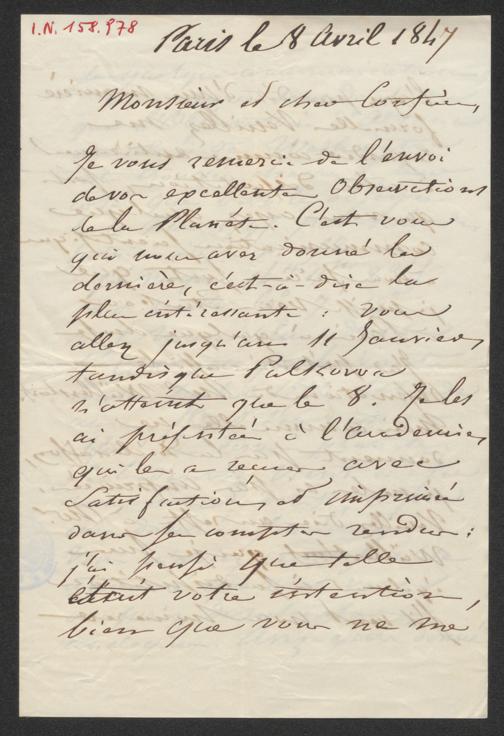 I.N. 158.978
Paris le 8 Avril 1847
Monsieur et cher Confrère,
Je vous remercie de l'envoi
de vos excellentes Observations
de la Planète. C'est vous
qui nous avez donné les
dernières, c'est-à-dire les
plus intéressantes : vous
allez jusqu'au 11 Janvier,
tandisque Pulkowa
n'atteint que le 8. Je les
ai présentées à l'académie,
qui les a reçues avec
Satisfaction, et imprimées
dans ses comptes rendus :
j'ai pensé que telle
était votre intention,
bien que vous ne me